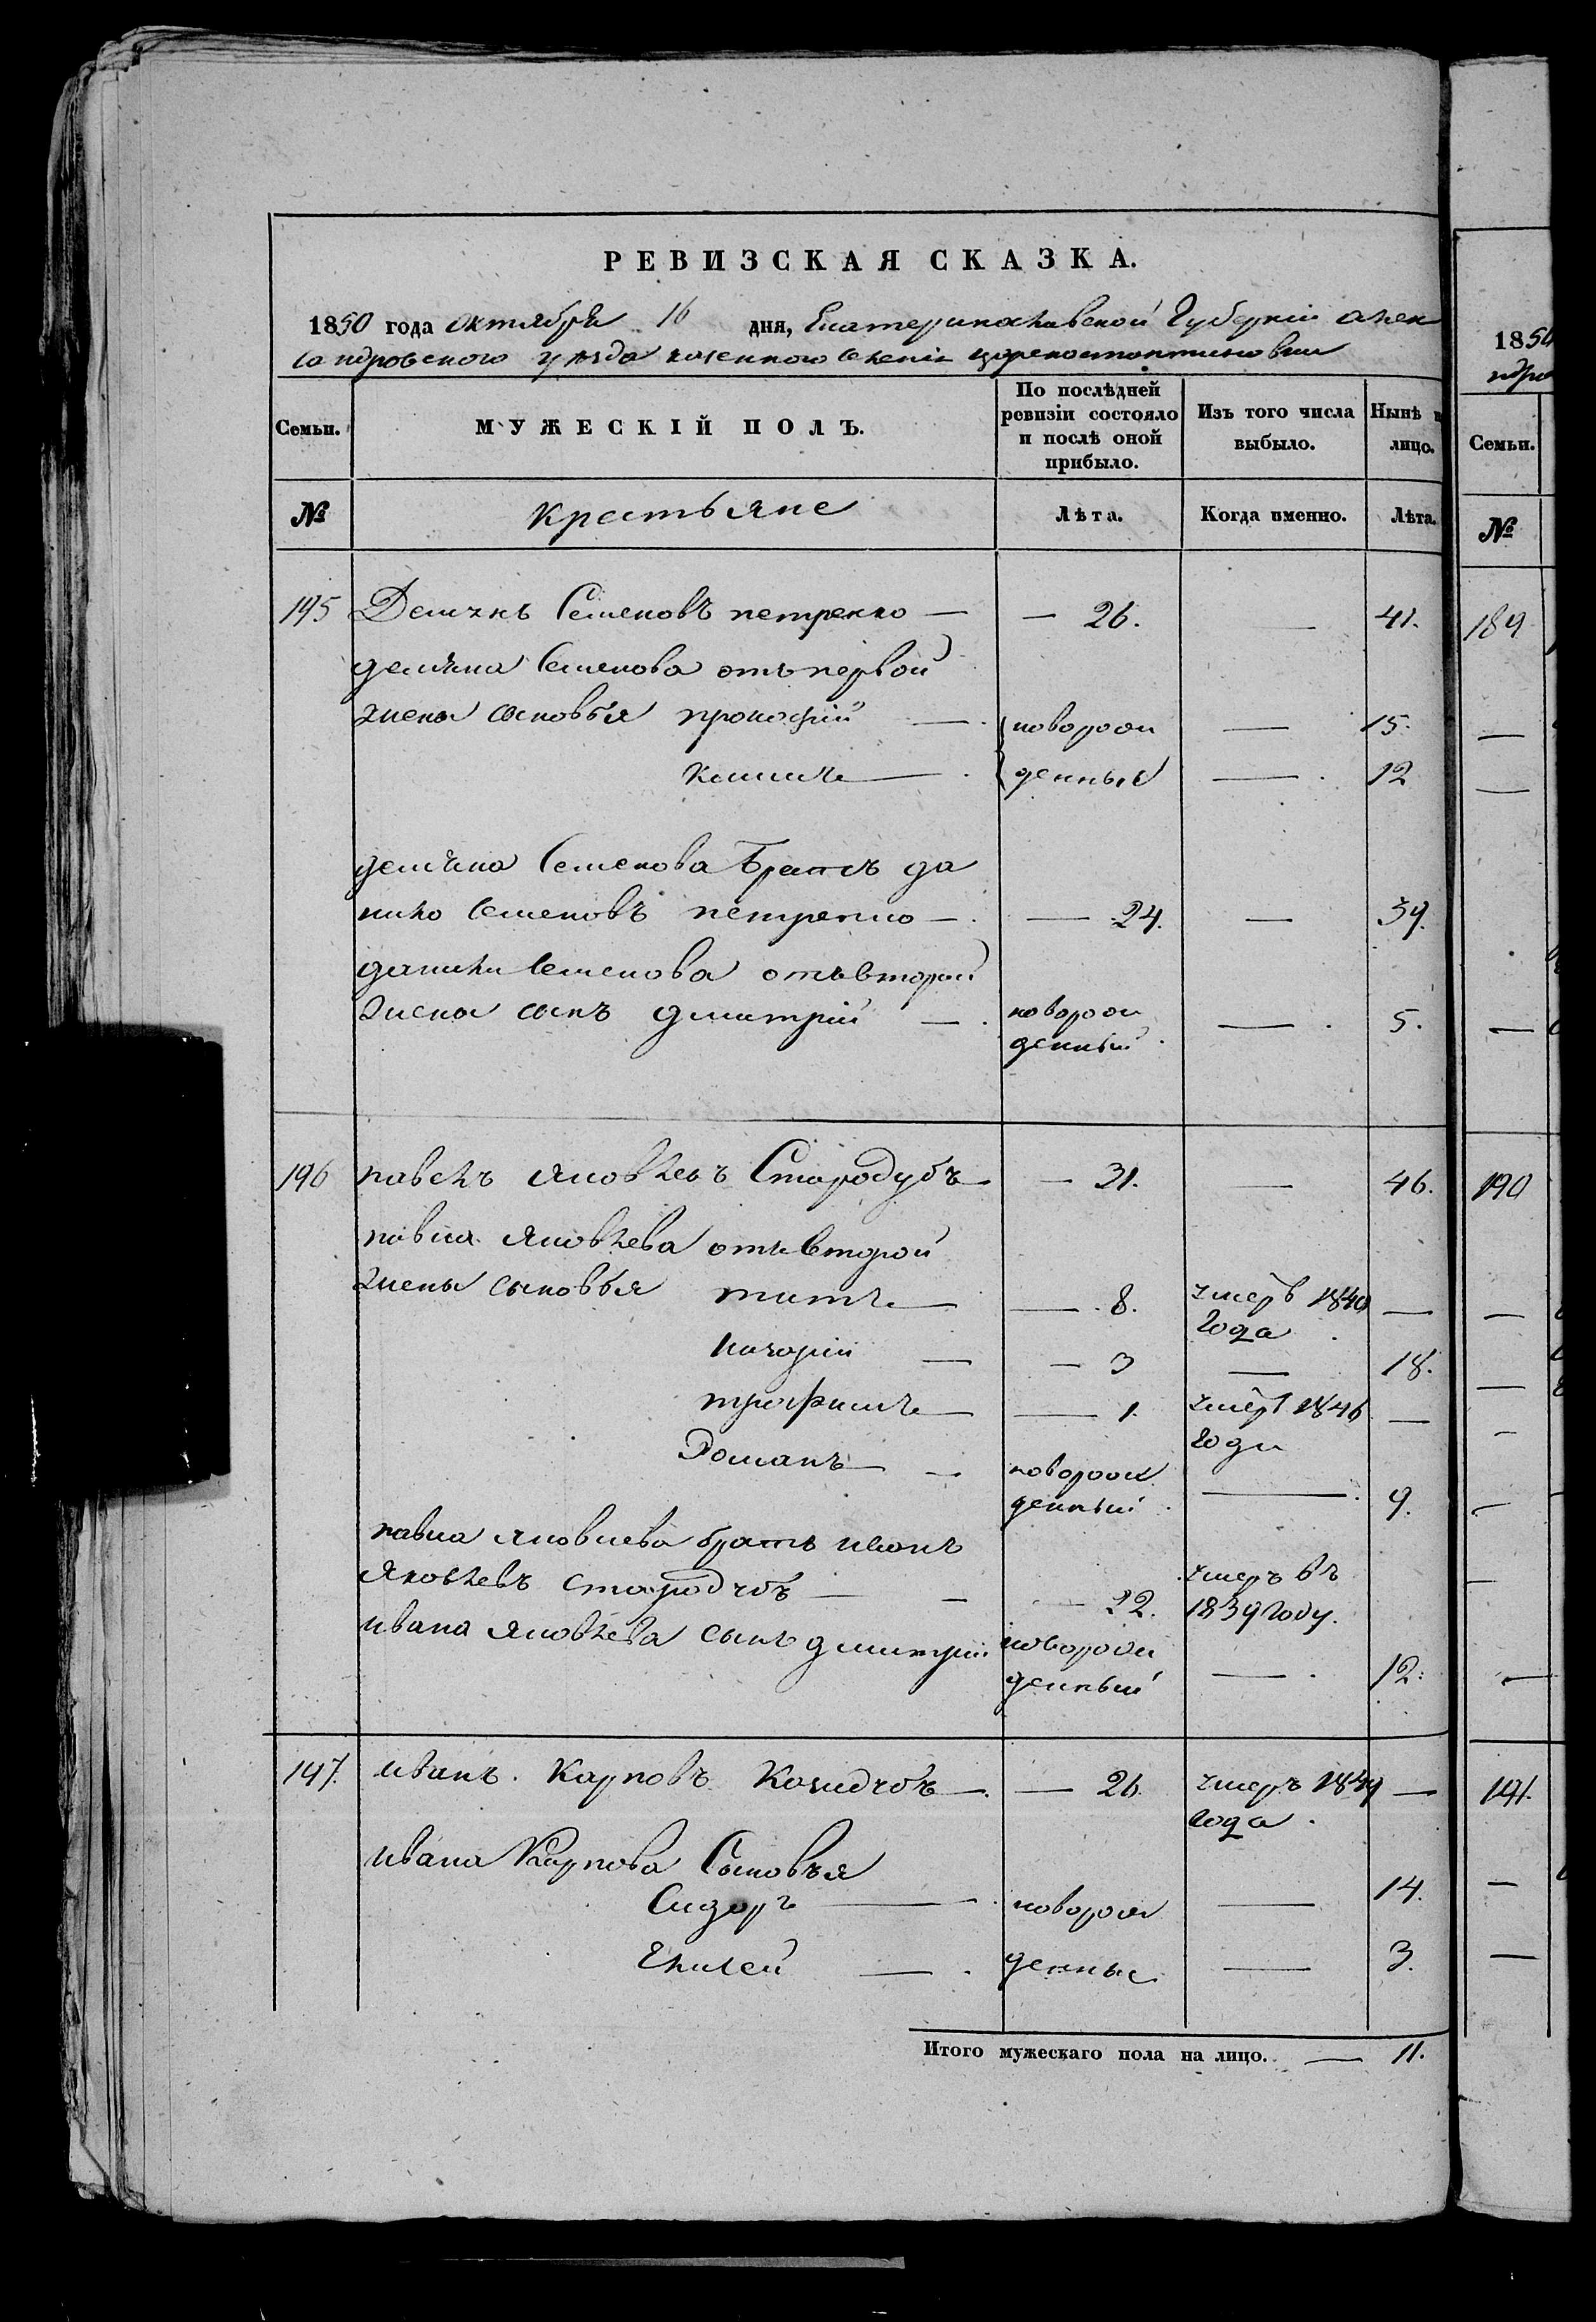 РЕВИЗСКАЯ СКАЗКА.
1850 года октября 16 дня, Екатеринославской Губерніи Алек
сандровского уезда казенного селенія Цареконстантиновки
Семьи.
МУЖЕСКІЙ ПОЛЪ.
По послѣдней ревизіи состояло и послѣ оной прибыло.
Изъ того числа выбыло.
Нынѣ
лицо.
№
Крестьяне
Лѣта.
Когда именно.
Лѣта.
195 Демянъ Семеновъ петренко — — 26. — 41.
демяна Семенова отъ первой
жены сыновья прокофій — новорож — 15.
— денные — 12
демяна Семенова Братъ да
нило Семеновъ петренко — — 24. — 39.
данилы Семенова отъ второй
жены сынъ дмитрій — новорож
денный — 5.
196 павелъ Яковлевъ Стародубъ — — 31. — 46.
павла Яковлева отъ второй
жены сыновья титъ — — 8. умеръ 1840 —
года
назарій — — 3 — 18.
трофимъ — — 1. умеръ 1846 —
года
Романъ — новорож
денный — 9.
павла Яковлева братъ иванъ
Яковлевъ стародубъ — — 22. умеръ въ
1839 году.
ивана Яковлева сынъ дмитрій новорож
денный — 12.
197. иванъ Карповъ — — 26. умеръ 1849 —
года
ивана Карпова Сыновья
Сидоръ — новорож — 14.
— денные — 3.
Итого мужескаго пола на лицо. — 11.
185
Семьи.
№
189
190
191.